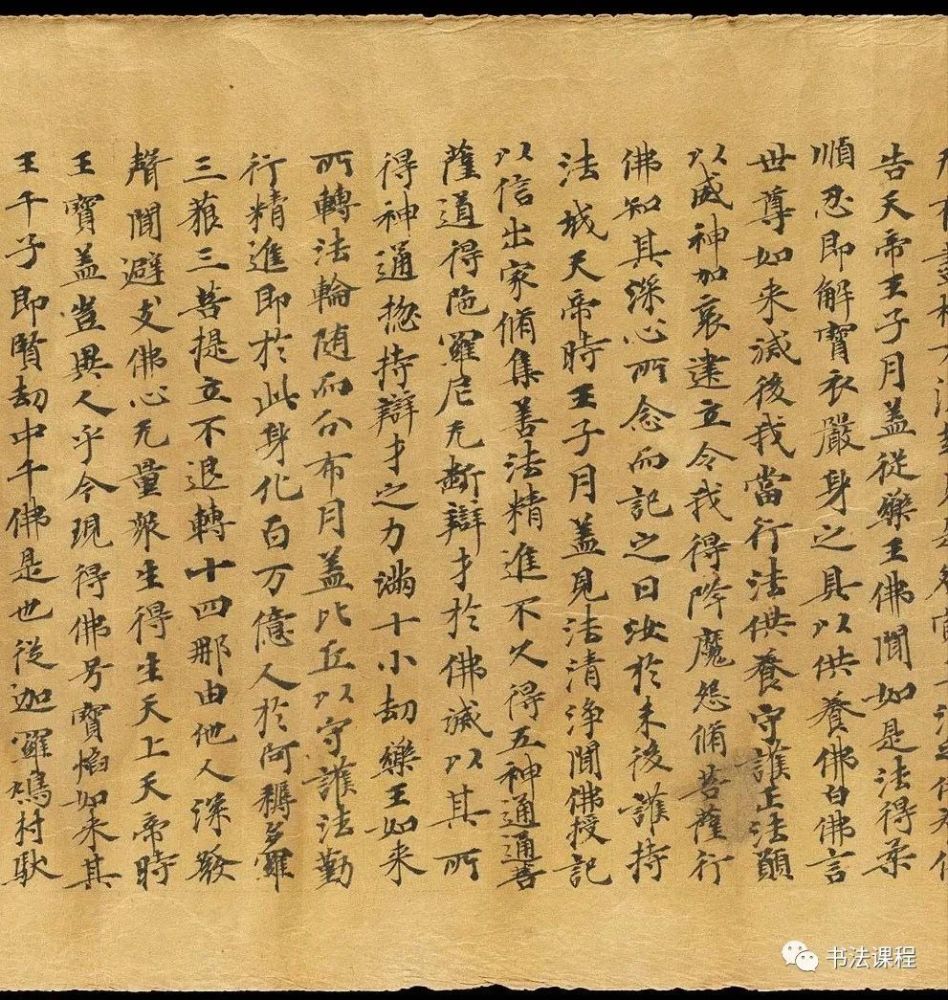 告天帝王子月盖從藥王佛聞如是法得柔
順忍即解寶衣嚴身之具以供養佛白佛言
世尊如来滅後我當行法供養守護正法願
以威神加哀建立令我得降魔怨脩菩薩行
佛知其深心所念而記之曰汝於末後護持
法城天帝時王子月盖見法清淨聞佛授記
以信出家脩集善法精進不久得五神通通菩
薩道得陁羅尼无断辯才於佛滅以其所
得神通揔持辯才之力滿十小劫藥王如来
所轉法輪随而分布月盖比丘以守護法勤
行精進即於此身化百万億人於阿耨多羅
三藐三菩提立不退轉十四那由他人深發
聲聞避支佛心无量眾生得生天上天帝時
王寶盖豈異人乎今現得佛号寶焰如来其
王千子即賢劫中千佛是也從迦羅鳩村馱
书法课程